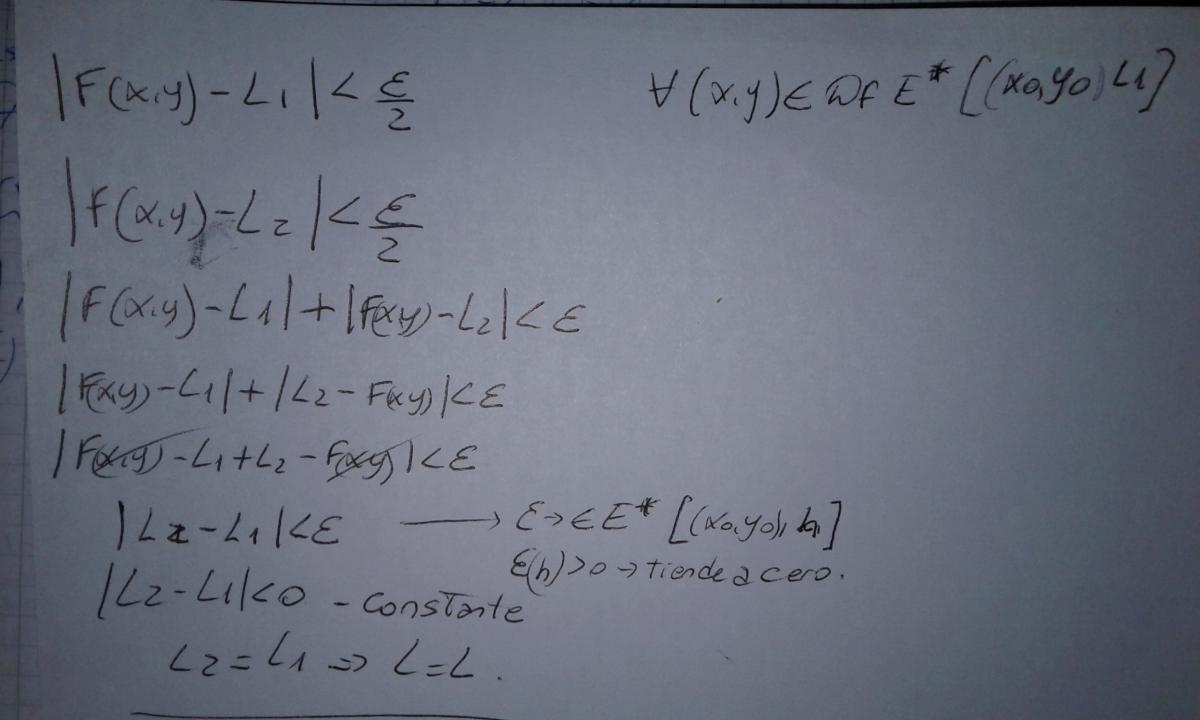 |F(x,y)-L1|<ε/2 ∀(x,y)∈Df E*[(x0,y0) L1]
|F(x,y)-L2|<ε/2
|F(x,y)-L1|+|F(x,y)-L2|<ε
|F(x,y)-L1|+|L2-F(x,y)|<ε
|F(x,y)-L1+L2-F(x,y)|<ε
|L2-L1|<ε → ε→∈E*[(x0,y0), h]
ε(h)>0→tiende a cero.
|L2-L1|<0 - constante
L2=L1 ⇒ L=L.